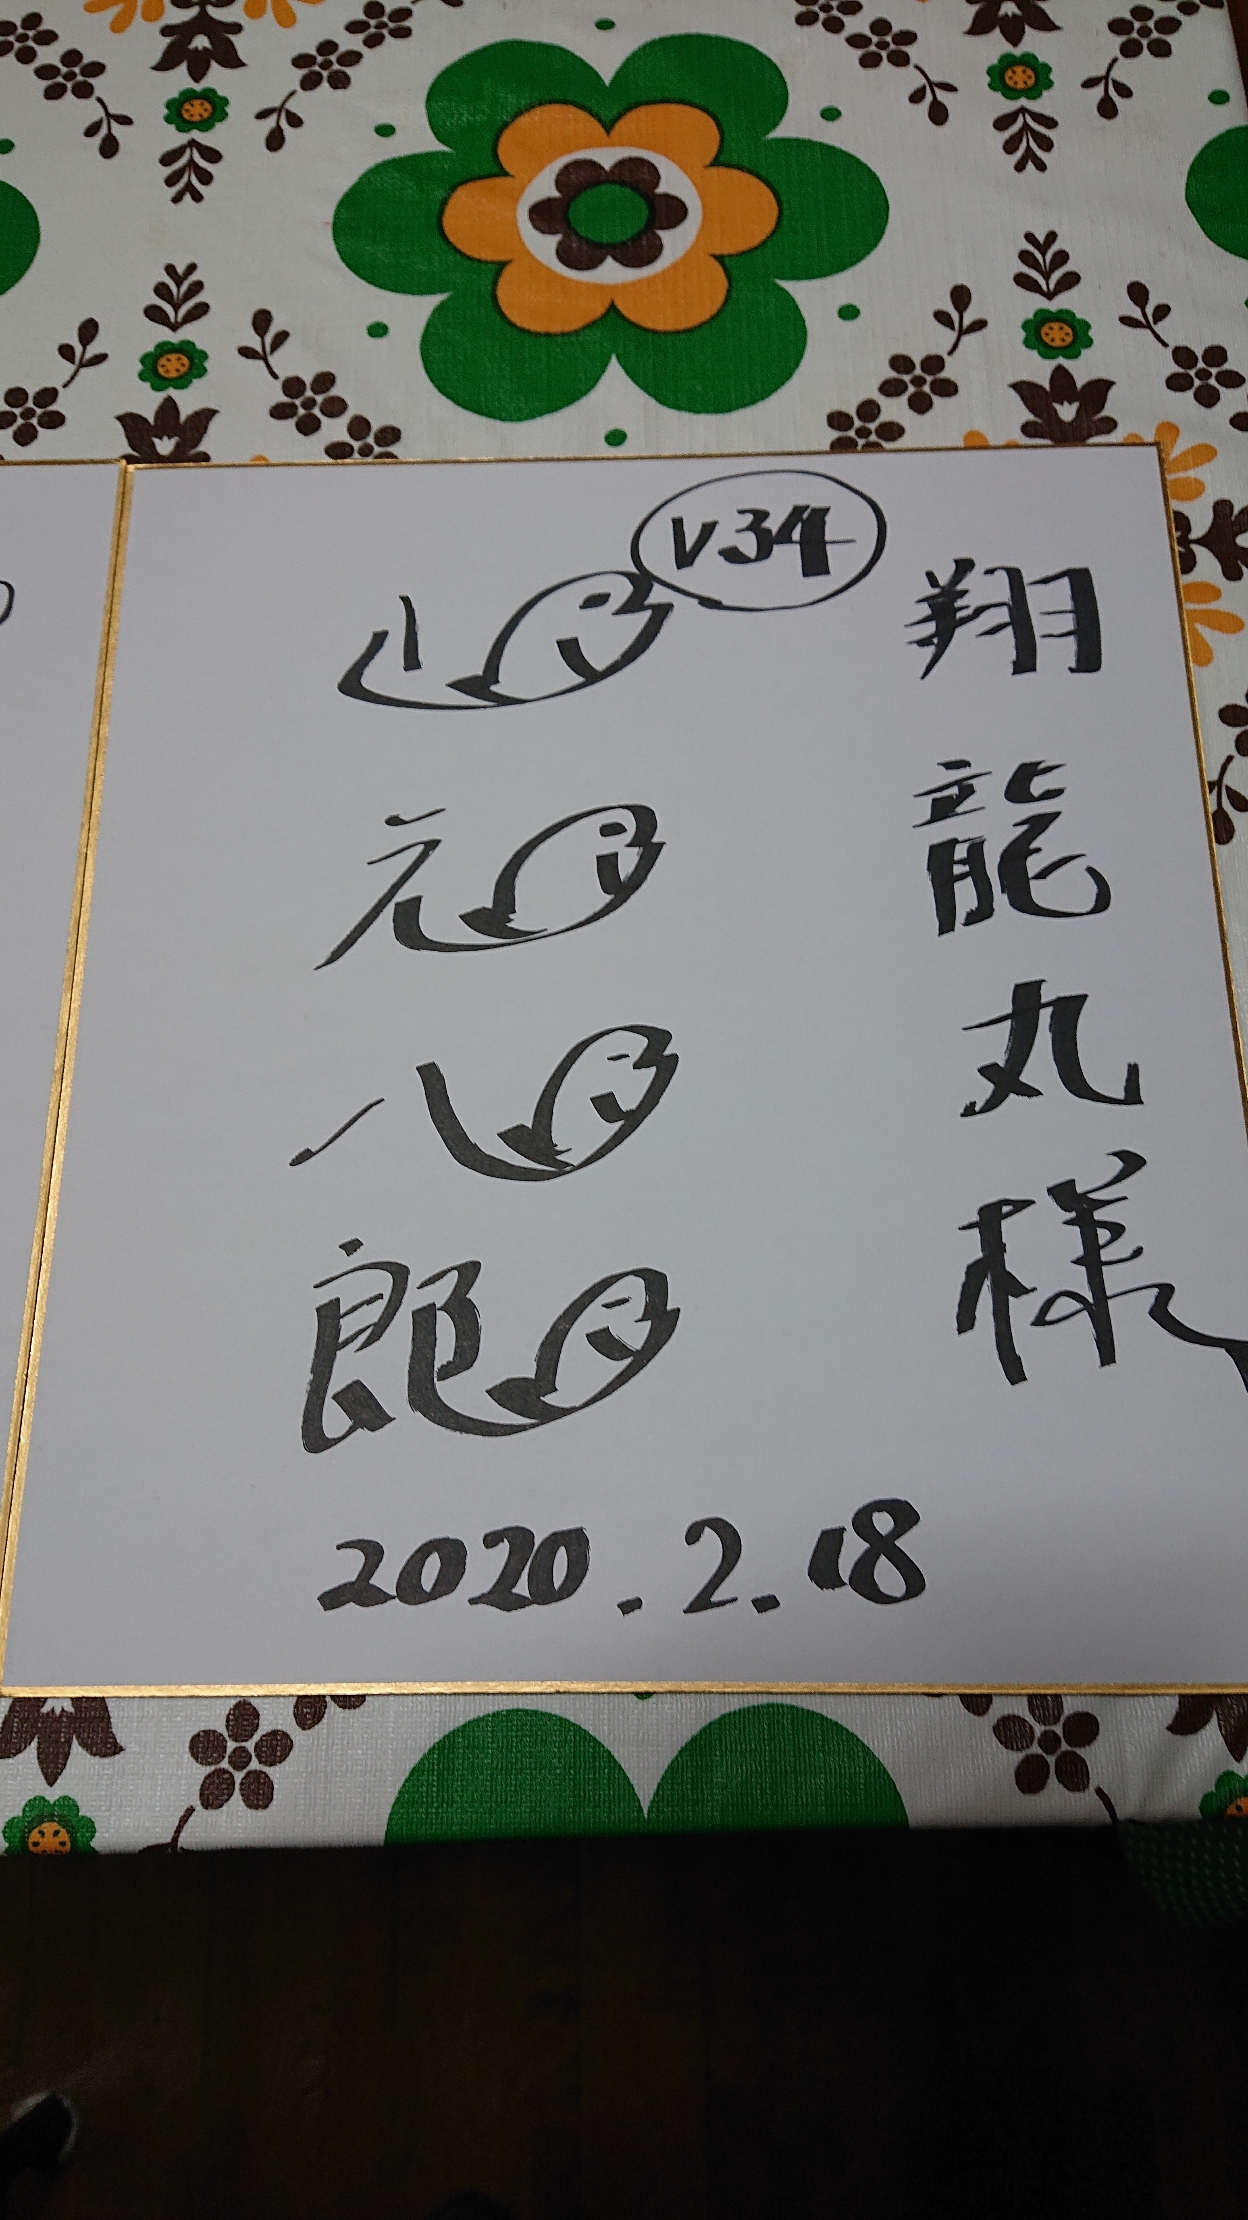 翔龍丸様
V34
山元八郎
2020.2.18